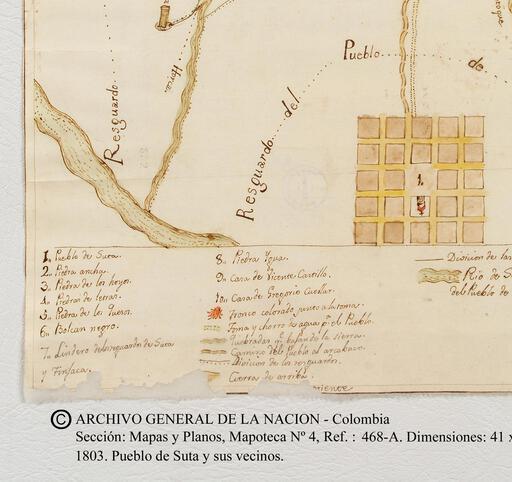 Resguardo
Horca
Resguardo del Pueblo de
1.
1,, Pueblo de Suta.
2,, Piedra ancha.
3,, Piedra de los hoyos.
4,, Piedras de letras.
5,, Piedra de los huesos.
6,, Bolcan negro.
7,, Lindero del resguardo de Suta
y Tinjaca.
8,, Piedra Ygua.
9,, Casa de Vicente Castillo.
10,, Casa de Gregorio Cuellar.
Tronco colorado junto a la toma.
Toma y chorro de agua pª el Pueblo.
Quebradas qᵉ bajan de la sierra.
Camino del Pueblo al arcabuco.
Division de los resguardos.
Cierros de arriba.
oriente
Division de las
Rio de S
del Pueblo de
© ARCHIVO GENERAL DE LA NACION - Colombia
Sección: Mapas y Planos, Mapoteca Nº 4, Ref. : 468-A. Dimensiones: 41 x
1803. Pueblo de Suta y sus vecinos.